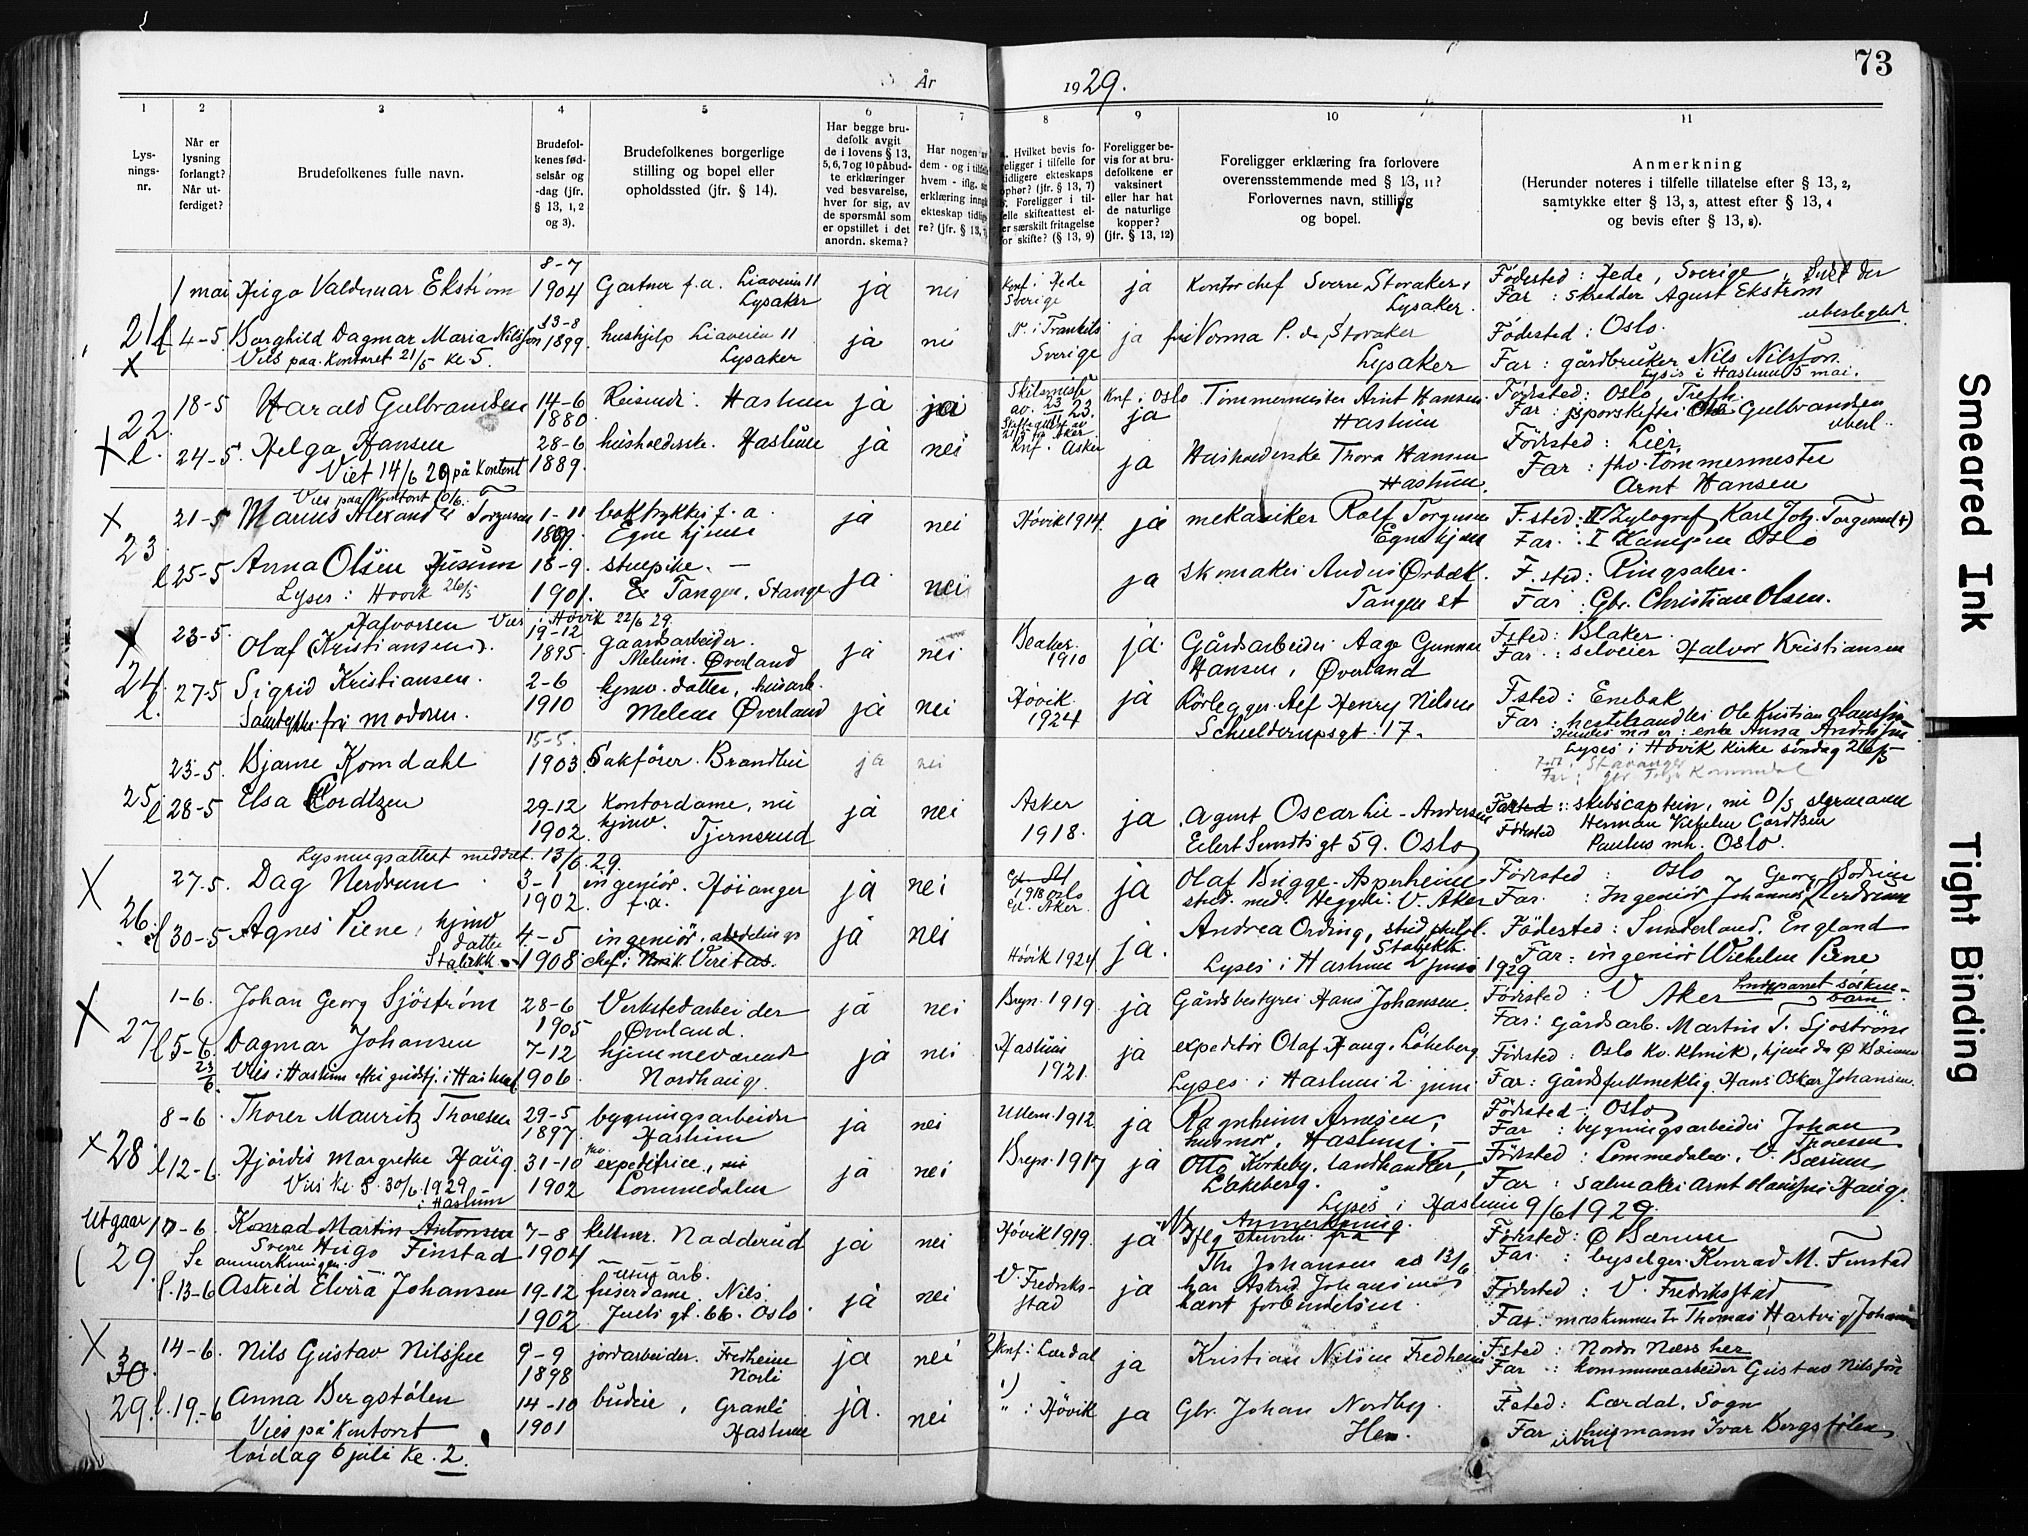 73
År 1929.
1 2 3 4 5 6 7 8 9 10 11
Lys-
nings-
nr.
Når er
lysning
forlangt?
Når ut-
ferdiget?
Brudefolkenes fulle navn.
Brudefol-
kenes fød-
selsår og
-dag (jfr.
§ 13, 1, 2
og 3).
Brudefolkenes borgerlige
stilling og bopel eller
opholdssted (jfr. § 14).
Har begge bru-
defolk avgit
de i lovens § 13,
5, 6, 7 og 10 påbud-
te erklæringer
ved besvarelse,
hver for sig, av
de spørsmål som
er opstillet i det
anordn. skema?
Har nogen av
dem - og i tilfelle
hvem - iflg. sin
erklæring inngå
ekteskap tidlig
re? (jfr. § 13, 7
a. Hvilket bevis fo-
religger i tilfelle for
tidligere ekteskaps
ophør? (jfr. § 13, 7)
b. Foreligger i til-
felle skifteattest el-
ler særskilt fritagelse
for skifte? (§ 13, 9)
Foreligger be-
vis for at bru-
defolkene er
vaksinert
eller har hat
de naturlige
kopper?
(jfr. § 13, 12)
Foreligger erklæring fra forlovere
overensstemmende med § 13, 11?
Forlovernes navn, stilling
og bopel.
Anmerkning
(Herunder noteres i tilfelle tillatelse efter § 13, 2,
samtykke etter § 13, 3, attest efter § 13, 4
og bevis efter § 13, 8).
21 l X
1 mai Hugo Valdemar Ekstrøm 8-7 1904 Gartner f.a. Liaveien 11 Lysaker ja nei Knf. i Hede Sverige ja Kontorchef Sverre Storaker, Lysaker. Fødested: Hede, Sverige
Far: Skredder Agust Ekström
ubeslegtet
4-5 Borghild Dagmar Maria Nilsson 13-8 1899 hushjelp Liaveien 11 Lysaker ja nei Sverige ja fru Norma P. de Storaker Lysaker Fødested: Oslo.
Far: gårdbruker Nils Nilsson
Vies paa kontoret 21/5 kl 5.
Lyses i Haslum 5 mai.
22. X l.
18-5 Harald Gulbrandsen 14-6 1880 Reisende. Haslum ja ja Knf. i Oslo ja Tømmermester Arnt Hansen Haslum Fødested: Oslo
Far: sporskifter Gulbrandsen
ubesl.
24-5. Helga Hansen 28-6 1889. husholderske. Haslum ja nei Knf. Asker ja Husholderske Thora Hansen Haslum. Fødested: Lier,
Far: fhv. tømmermester
Arnt Hansen
Viet 14/6 29 på Kontoret
X 23 l
Vies paa Kontoret 10/6.
21-5 Marius Alexander Torgersen 1-11 1899. boktrykker f.a. Egne hjem ja nei Høvik 1914. ja mekaniker Rolf Torgersen Egne hjem F.sted: II Xylograf Karl Joh. Torgersen (+)
Far: I Kampen Oslo
25-5. Anna Olsen Husum 18-9. 1901. stuepike. – Tangen, Stange ja nei ja Skomaker Anders Ørbæk. Tangen st F.sted: Ringsaker.
Far: Gbr. Christian Olsen.
Lyses: Høvik 26/5
X 24. l.
Halvorsen Vies i Høvik 22/6 29.
23-5. Olaf (Kristiansen). 19-12 1895 gaardsarbeider. Melum. Øverland ja nei 1910 ja. Gårdsarbeider Aage Gunnar Hansen, Øverland F.sted: Blaker.
Far: selveier Halvor Kristiansen
27-5. Sigrid Kristiansen. 2-6 1910 hjmv. datter, husarb. Melum Øverland ja nei Høvik. 1924. ja Rørlegger Alf Henry Nilsen Schielderupsgt. 17. F.sted: Enebak
Far: hestehandler Ole Kristian Olaussen
Hendes mor er: enke Anna Andersen
Samtykke fra moderen.
Lyses i Høvik kirke søndag 26/5
25. l
23-5. Bjarne Komdahl 15-5. 1903. Sakfører. Brandbu ja nei Født: Stavanger
28-5 Elsa Cordtzen 29-12 1902. Kontordame, nu hjmv. Tjernsrud ja nei Asker 1918. ja Agent Oscar Lie-Andersen Eilert Sundts gt 59. Oslo Far: skibscaptein, nu D/S styrmann
Herman Vilhelm Cordtsen
Fødested Paulus mh. Oslo.
Lysningsattest meddelt 13/6. 29.
X 26. l
27-5. Dag Nerdrum 3-1 1902. ingeniør. Høianger f.a. ja nei 1918 Oslo V. Aker. ja Olaf Brigge-Asperheim stud. med. Heggeli. V. Aker Fødested: Oslo
Far: Ingeniør Johannes Georg Bodrum Nerdrum
30-5 Agnes Piene, hjmv datter Stabekk 4-5 1908. ingeniør, avdelings chef i Norsk Veritas. ja nei Høvik 1924 ja. Andrea Ording, stud. philol. Stabekk Fødested: Sunderland, England
Far: ingeniør Wilhelm Piene
Lyses i Haslum 2 juni 1929
X 27 l
1-6. Johan Georg Sjöström 28-6 1905 Verkstedarbeider Øverland. ja nei Bryn. 1919. ja Gårdsbestyrer Hans Johansen. Fødested: V Aker
Far: Gårdsarb. Martin T. Sjöström
5-6. Dagmar Johansen 7-12 1906. hjemmeværende Nordhaug. ja nei Haslum 1921. ja expeditör Olaf Haug, Løkeberg Fødested: Oslo kv. klinik, hjem da Ø Bærum
Far: Gårdsfullmektig Hans Oskar Johansen.
23/6. Vies i Haslum
Lyses i Haslum 2. juni
X 28. l
8-6. Thorer Mauritz Thoresen 29-5 1897. bygningsarbeider Haslum ja nei Ullern. 1912 ja Ragnheim Arnesen, husmor, Haslum. Fødested: Oslo
Far: bygningsarbeider Johan Thoresen
12-6. Hjördis Margrethe Haug 31-10 1902 expeditrice, Lommedalen ja nei Bryn. 1917 ja Otto Korkeby, Landhandler, Løkeberg. Fødested: Lommedalen. V. Bærum
Far: salmaker Arnt Haug.
Vies kl. 5. 30/6. 1929 i Haslum
Lyses i Haslum 9/6 1929.
Utgaar 29.
10-6. Konrad Martin Antonsen Sverre Hugo Finstad 7-8 1904 kellner. Nadderud ja nei Høvik 1919. ja Fødested: Ø Bærum
Far: lysselger Konrad M. Finstad
Se anmerkningen.
l. 13-6 Astrid Elvira Johansen 19-12 1902 friserdame. Nils Juels gt. 66. Oslo ja nei V. Fredriks-stad ja Fødested: V. Fredrikstad
Far: maskinmester Thomas Hartvig Johansen
N3 Anmerkning.
Iflg skrivelse fra
Th. Johansen av 13/6
har Astrid Johansen
hævet forbindelsen.
X 30 29. l.
14-6. Nils Gustav Nilssen 9-9 1898 jordarbeider. Fredheim Norli ja nei Knf: Lærdal ja Kristian Nilsen Fredheim F.sted: Nordre Næss her
Far: kommunearbeider Gustav Nilssen
19-6 Anna Bergstølen 14-10 1901 budeie, Granli Haslum ja. nei ": Høvik ja Gbr. Johan Nordby. Hem. F.sted: Lærdal, Sogn
Far: husmann Ivar Bergstølen
ubesl
Vies på Kontoret
lørdag 6 juli kl. 2.
Smeared Ink
Tight Binding